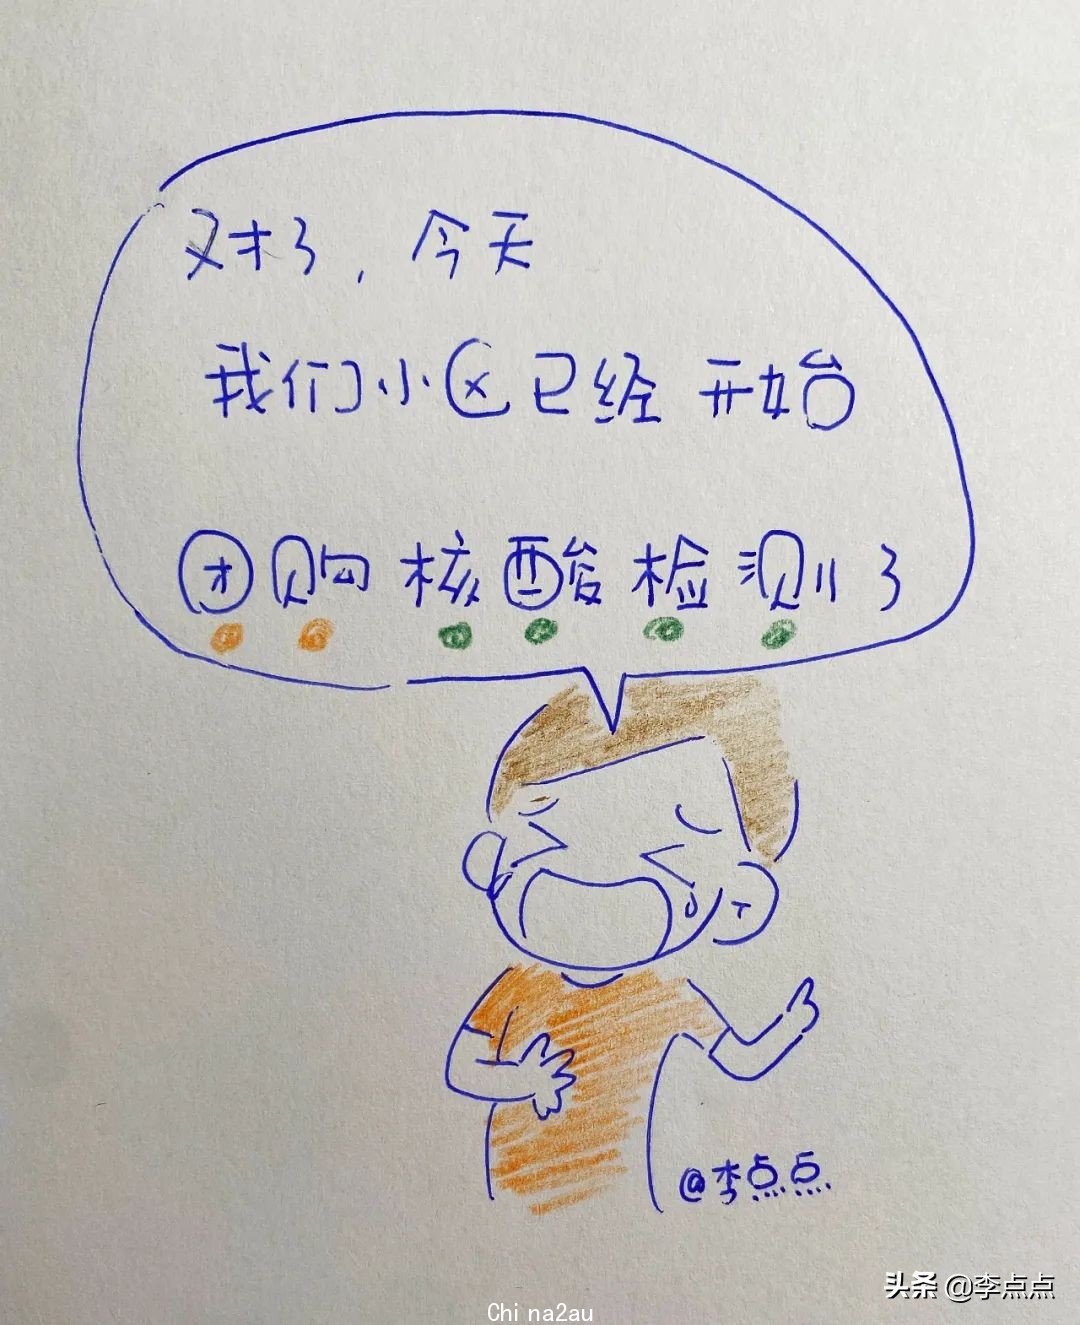 对了，今天
我们小区已经开始
团购核酸检测了
@李点点
头条 @李点点
Chi na2au